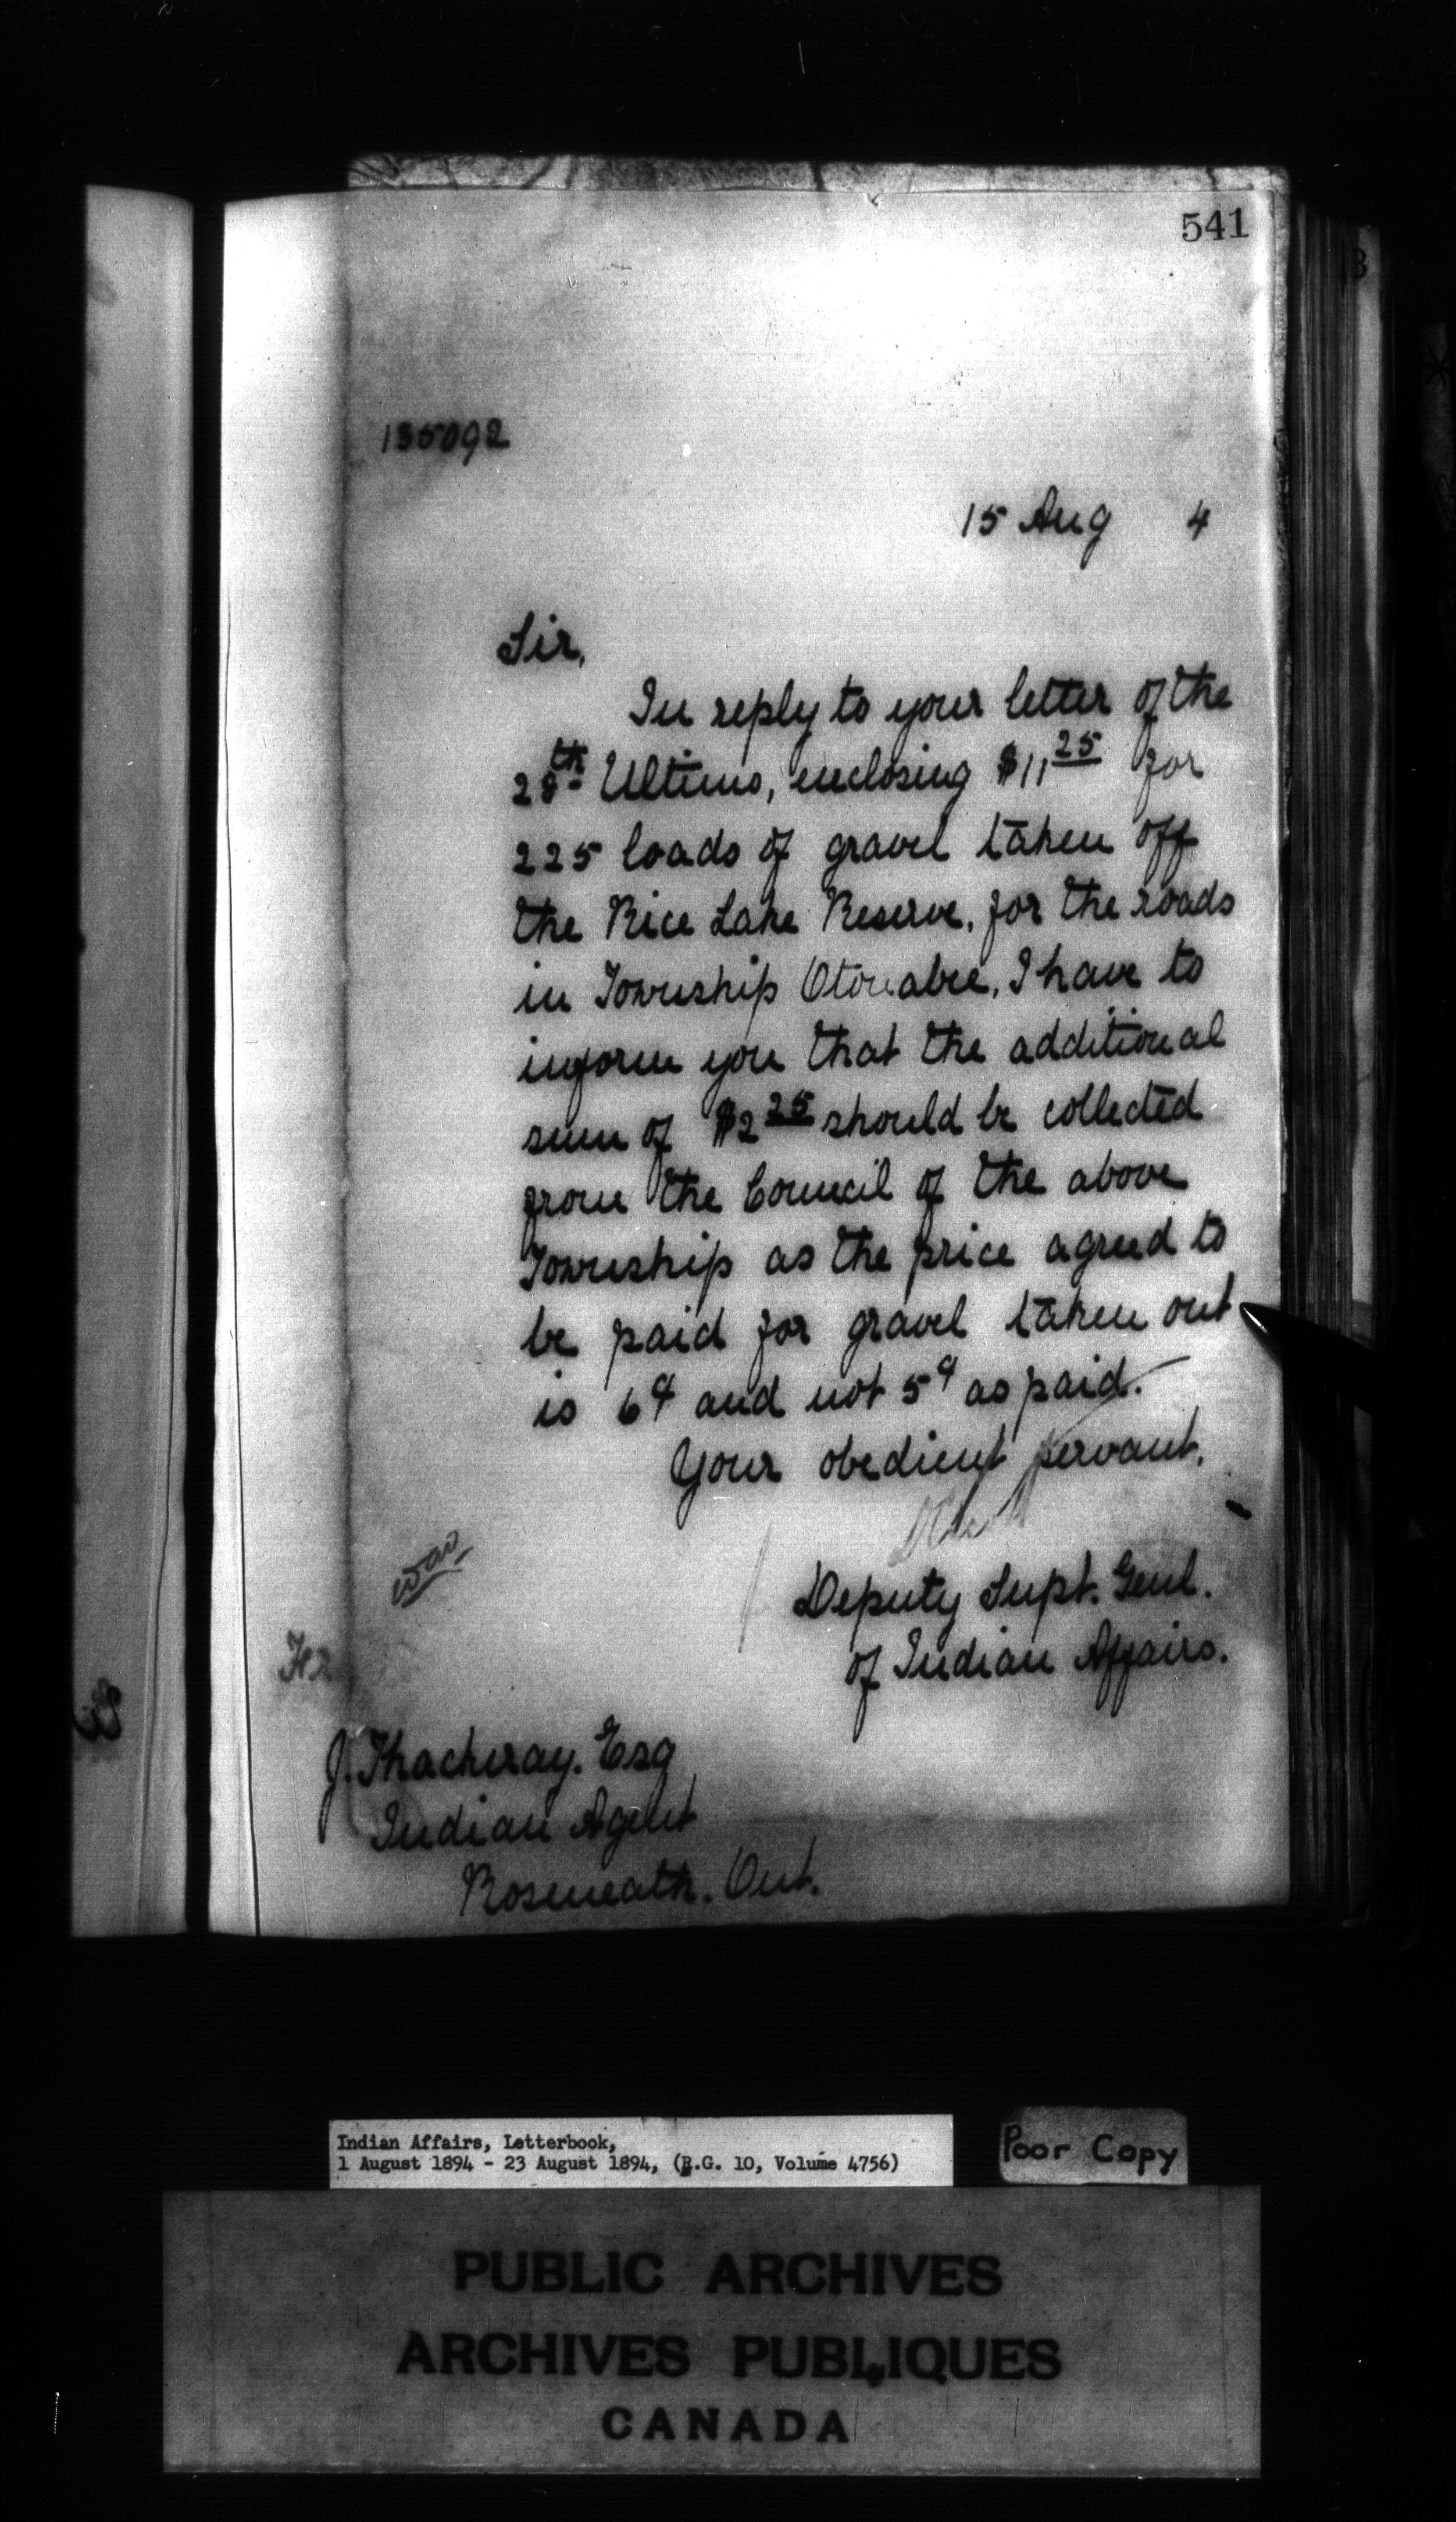 541
135092
15 Aug 4
Sir,
In reply to your letter of the
28th Ultimo, enclosing $11 25 for
225 loads of gravel taken off
the Rice Lake Reserve, for the roads
in Township Otonabee, I have to
inform you that the additional
sum of $2 25 should be collected
from the Council of the above
Township as the price agreed to
be paid for gravel taken out
is 6¢ and not 5¢ as paid.
Your obedient servant,
Deputy Supt. Genl.
of Indian Affairs.
J. Thackeray. Esq
Indian Agent
Roseneath. Ont.
Indian Affairs, Letterbook,
1 August 1894 - 23 August 1894, (R.G. 10, Volume 4756)
Poor Copy
PUBLIC ARCHIVES
ARCHIVES PUBLIQUES
CANADA